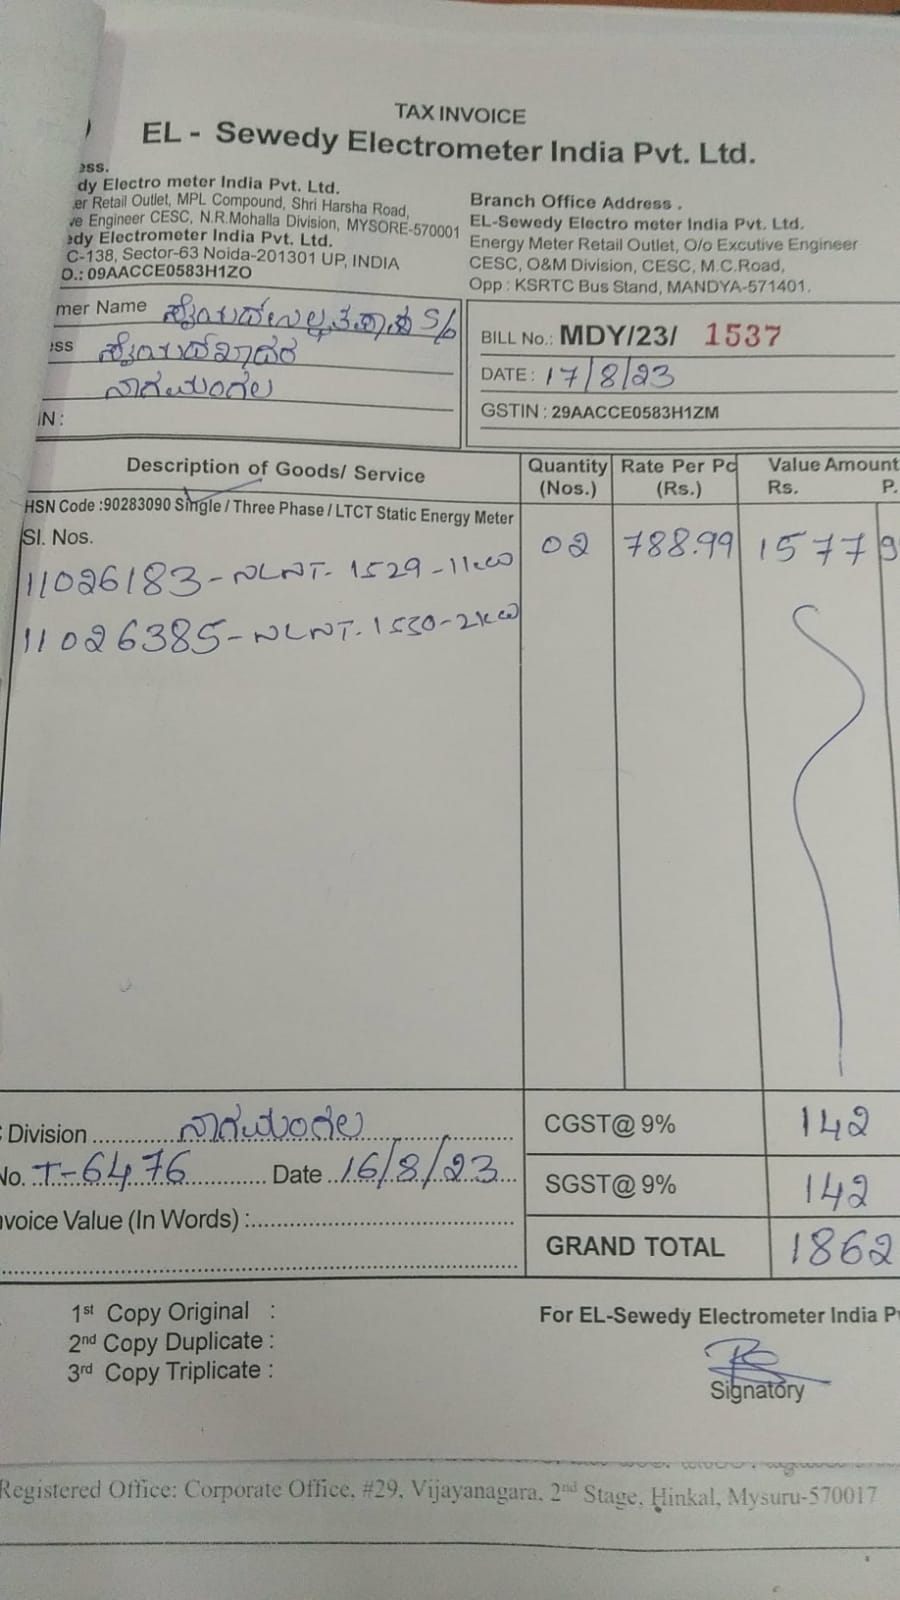 TAX INVOICE
EL - Sewedy Electrometer India Pvt. Ltd.
ess.
dy Electro meter India Pvt. Ltd.
er Retail Outlet, MPL Compound, Shri Harsha Road,
ve Engineer CESC, N.R.Mohalla Division, MYSORE-570001
edy Electrometer India Pvt. Ltd.
C-138, Sector-63 Noida-201301 UP, INDIA
O.: 09AACCE0583H1ZO
Branch Office Address .
EL-Sewedy Electro meter India Pvt. Ltd.
Energy Meter Retail Outlet, O/o Excutive Engineer
CESC, O&M Division, CESC, M.C.Road,
Opp : KSRTC Bus Stand, MANDYA-571401.
mer Name S/o
ess
ನಾಗಮಂಗಲ
IN :
BILL No.: MDY/23/ 1537
DATE : 17/8/23
GSTIN : 29AACCE0583H1ZM
Description of Goods/ Service Quantity (Nos.) Rate Per Pc (Rs.) Value Amount Rs. P.
HSN Code :90283090 Single / Three Phase / LTCT Static Energy Meter
Sl. Nos. 02 788.99 1577 9
11026183-NLNT-1529-11KW
11026385-NLNT-1530-2KW
Division ನಾಗಮಂಗಲ
CGST@ 9% 142
No. T-6476 Date 16/8/23
SGST@ 9% 142
nvoice Value (In Words) :
GRAND TOTAL 1862
1st Copy Original :
2nd Copy Duplicate :
3rd Copy Triplicate :
For EL-Sewedy Electrometer India P
Signatory
Registered Office: Corporate Office, #29, Vijayanagara, 2nd Stage, Hinkal, Mysuru-570017